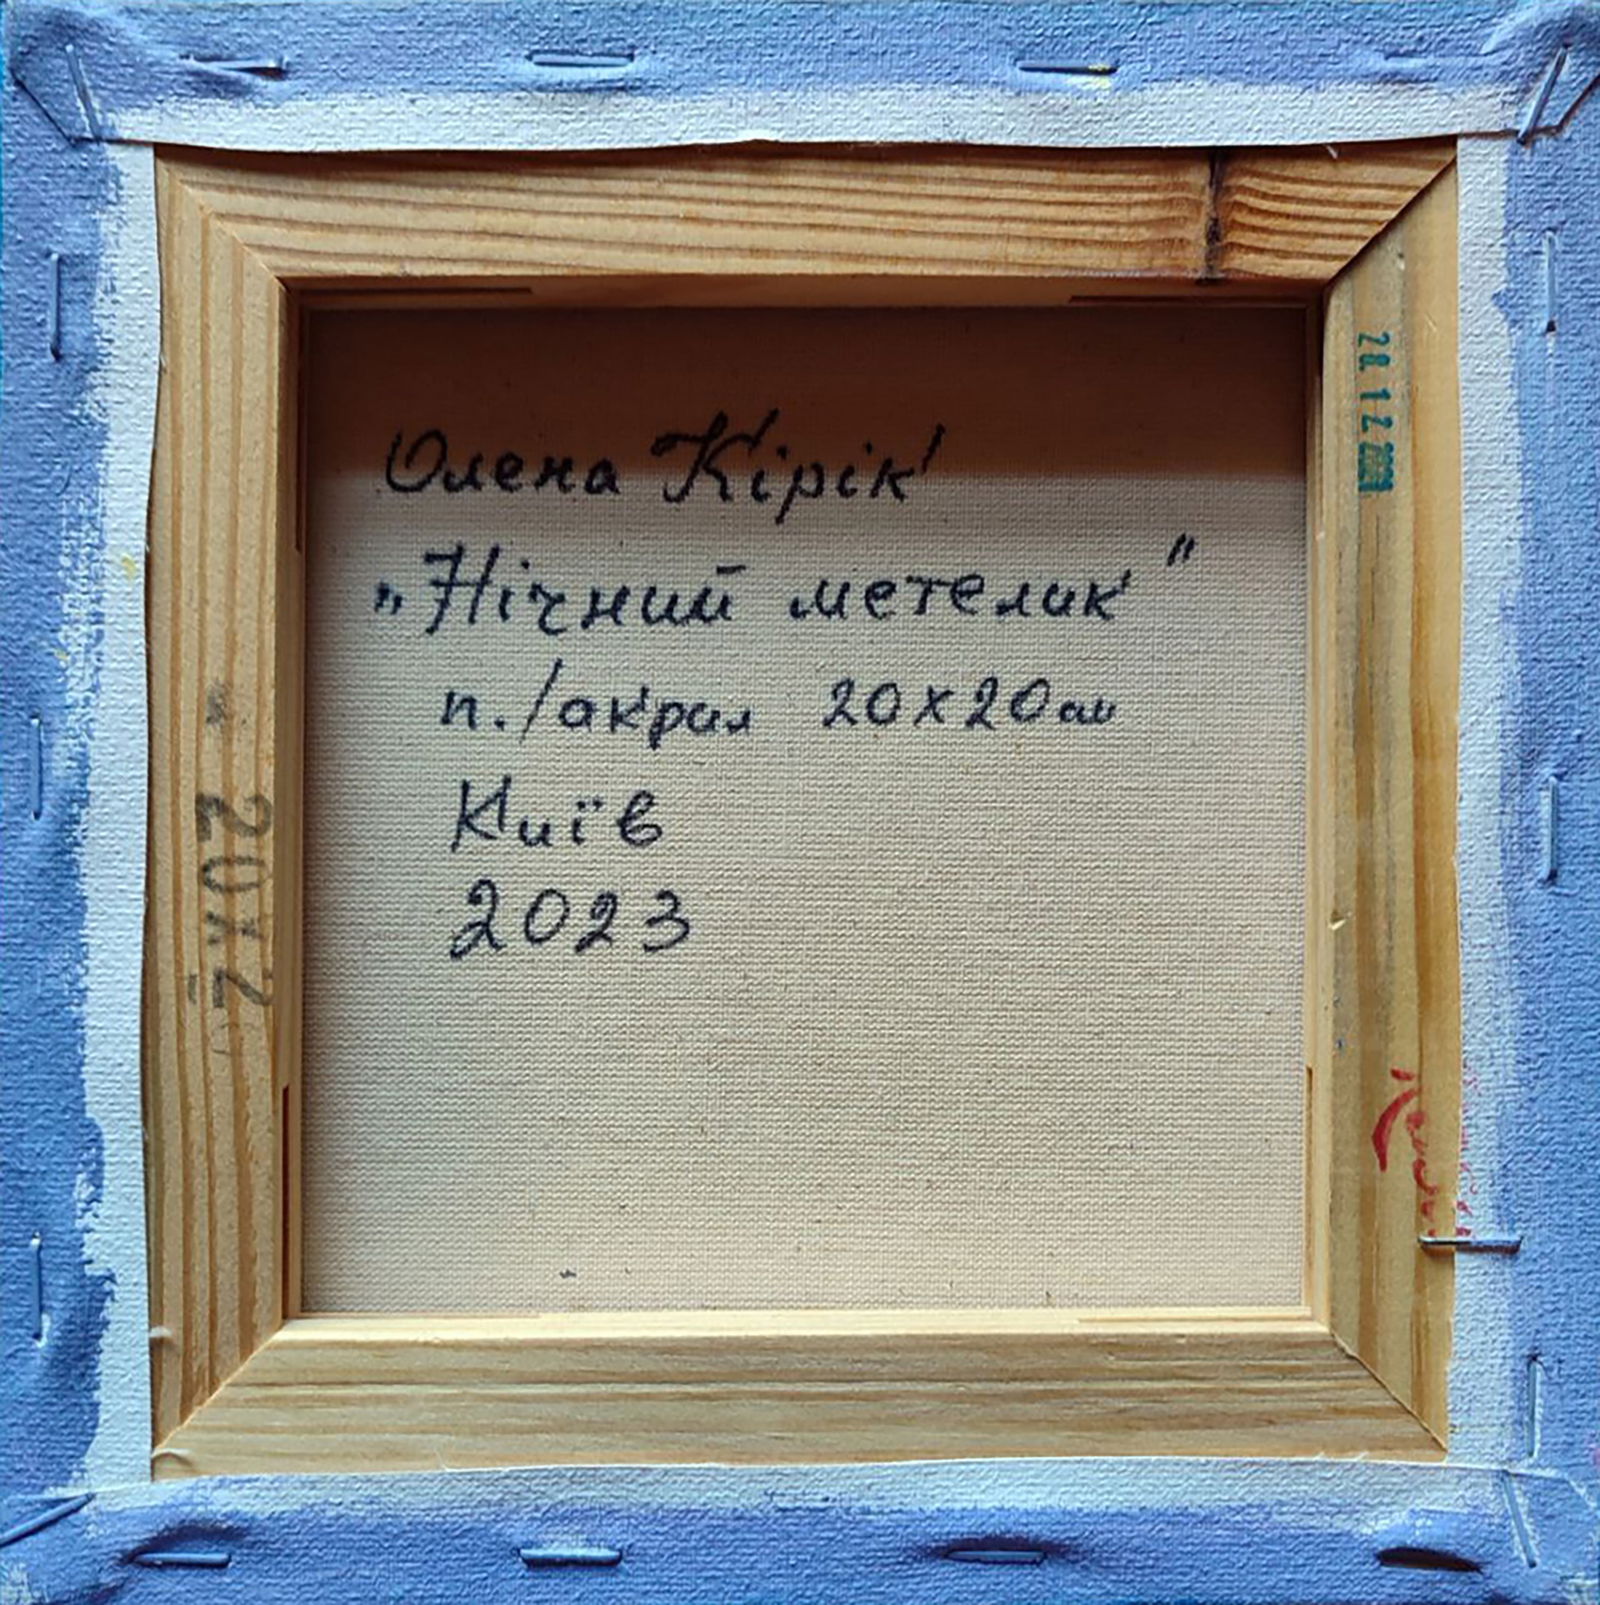 Олена Кірік
„Нічний метелик"
п./акрил 20х20см
Київ
2023
20х2